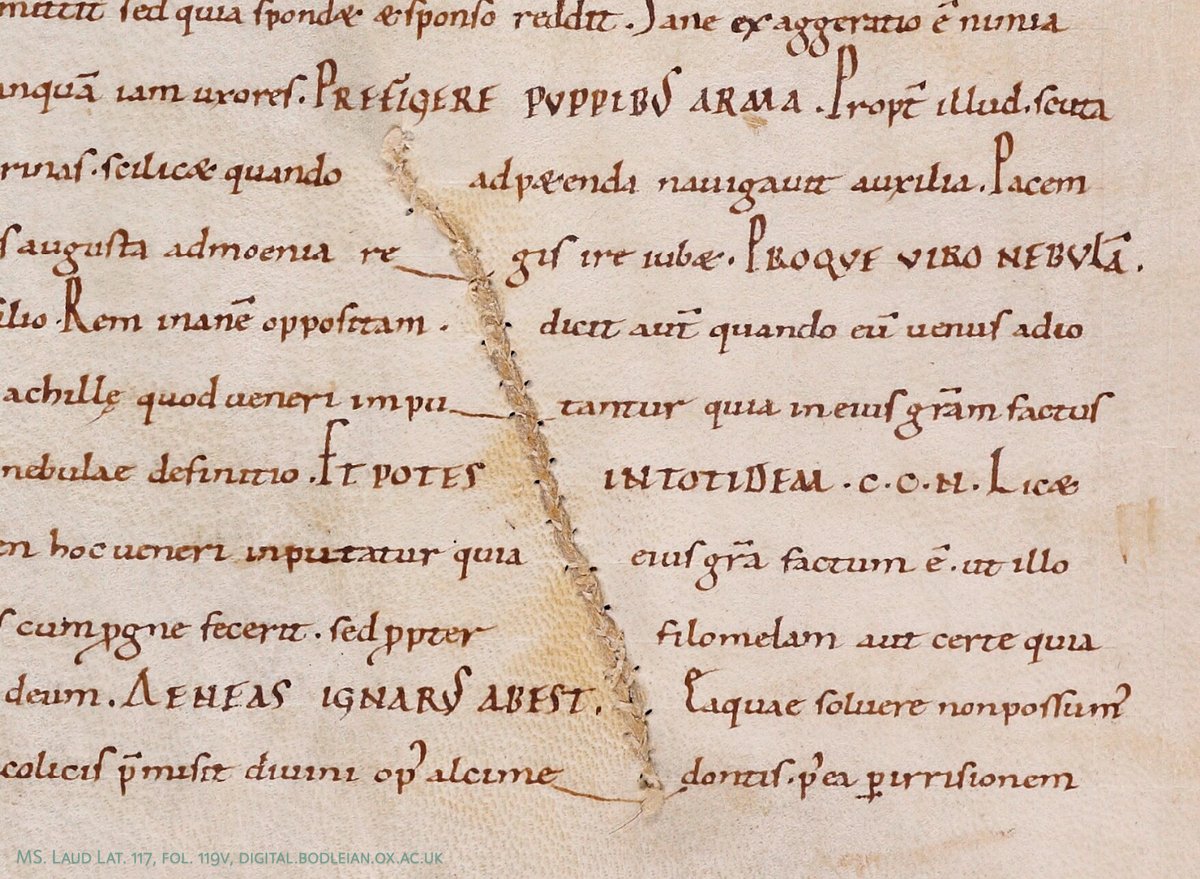 mittit sed quia spondæ æ sponso reddit. Sane exaggeratio ē nimia
nquā iam uxores. PREFIGERE PUPPIBUS ARMA. Propt̄ illud. scuta
rinas. scilicæ quando ad pæenda nauigauit auxilia. Pacem
s augusta ad moenia re gis ire iubæ. PROQUE VIRO NEBULĀ.
ilio. Rem inanē oppositam. dicit aut̄ quando eū uenus adio
achillę quod ueneri impu tantur quia in eius grām factus
nebulae definitio. ET POTES IN TOTIDEM. C. C. N. Licæ
en hoc ueneri inputatur quia eius grā factum ē. ut illo
s cum ꝓgne fecerit. sed ꝓpter filomelam aut certe quia
deum. AENEAS IGNARUS ABEST. Ea quae soluere non possum᾽
colicis p̄misit diuini op᾽ alcime dontis. p᾽ ea ꝑ irrisionem
MS. LAUD LAT. 117, FOL. 119V, DIGITAL.BODLEIAN.OX.AC.UK